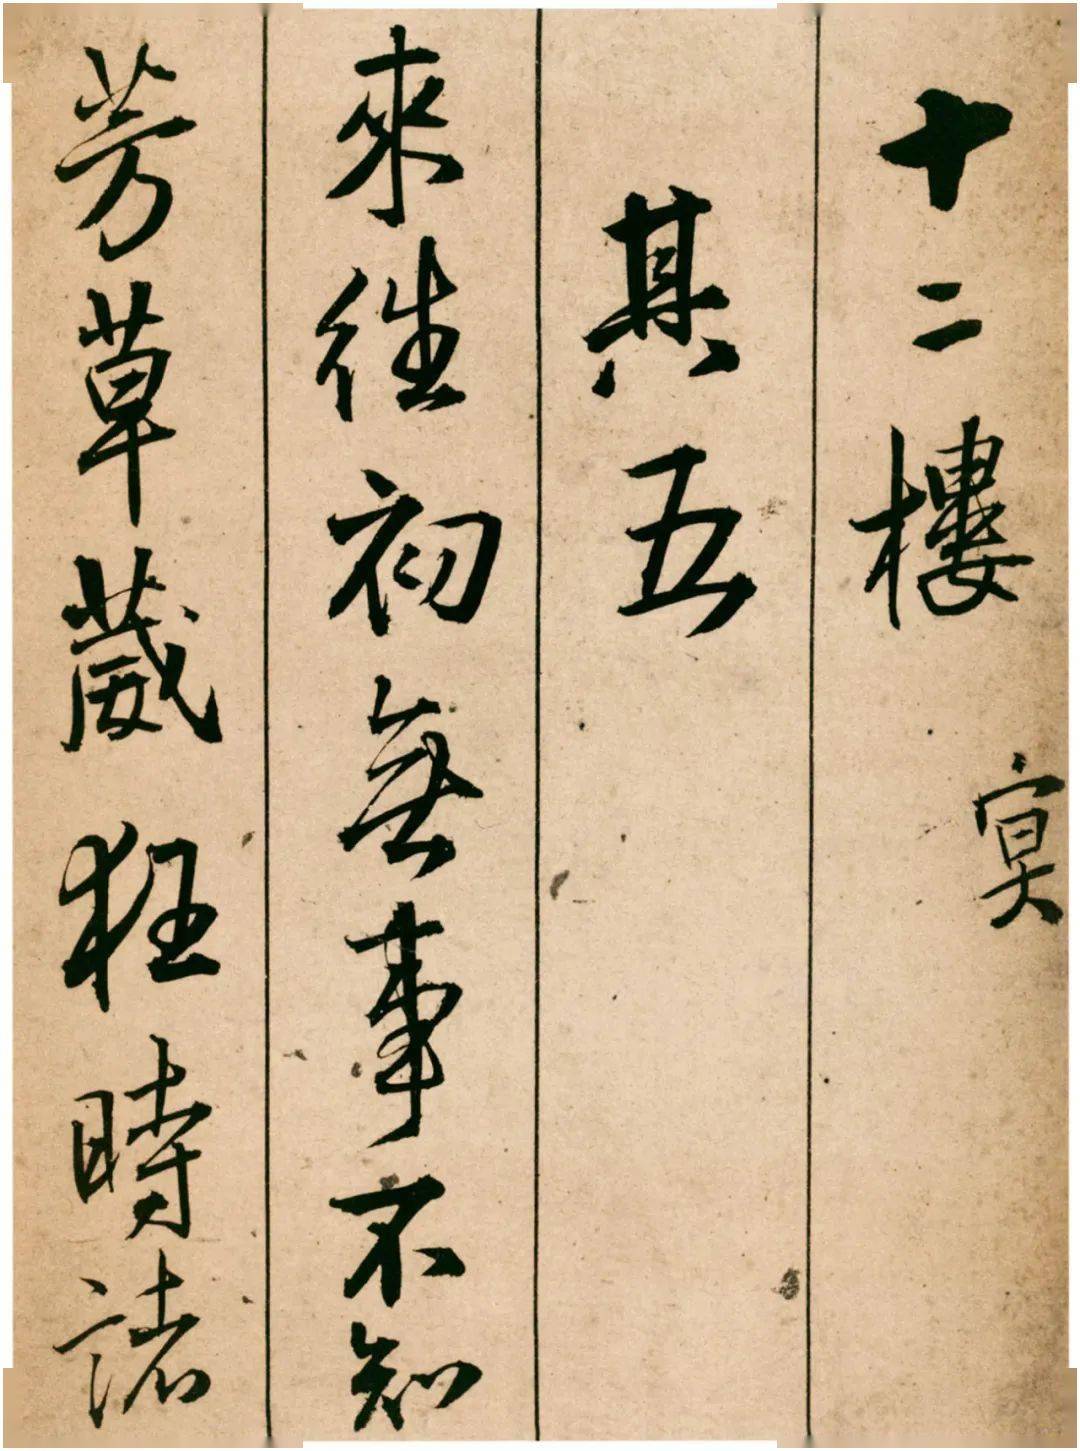 十二樓
冥
其五
來往初無事不知
芳草葳狂時諸